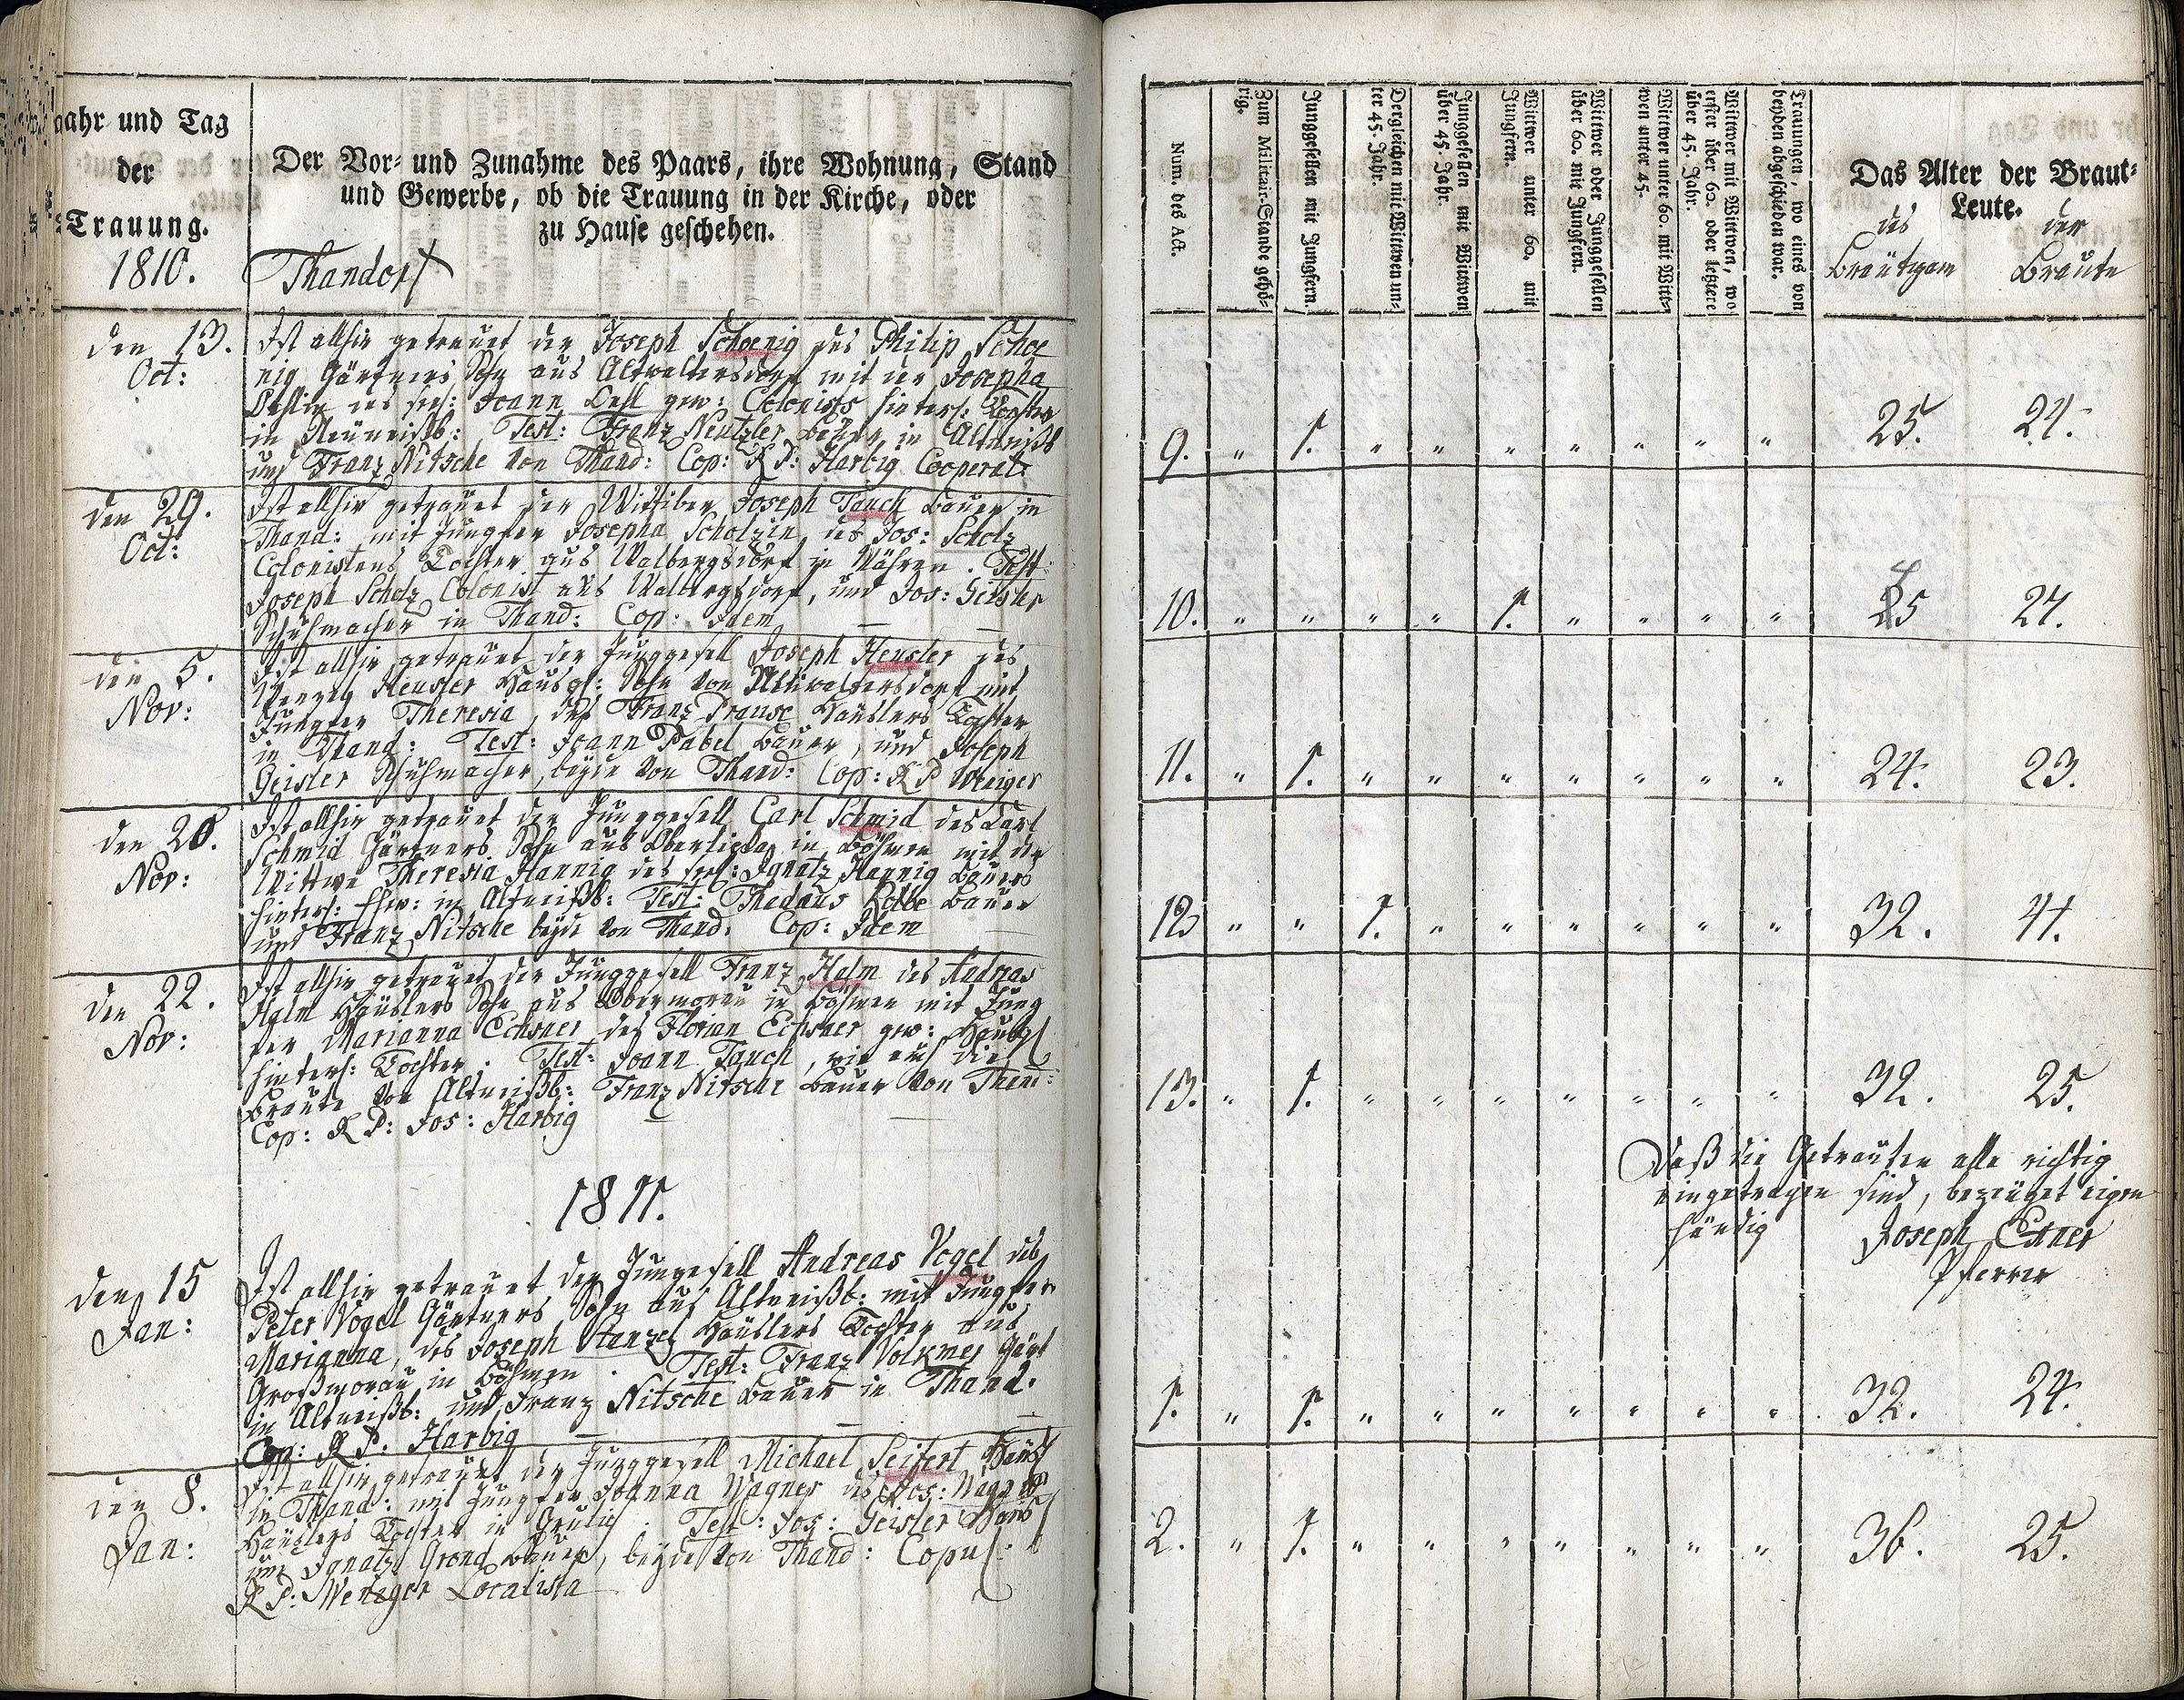 Jahr und Tag
der
Trauung.
1810.
Der Vor- und Zunahme des Paars, ihre Wohnung, Stand
und Gewerbe, ob die Trauung in der Kirche, oder
zu Hause geschehen.
Thandorf
den 13.
Oct:
Ist allhir getrauet der Joseph Schoenig des Philip Schoe
nig Gärtners Sohn aus Altwaltersdorf mit der Josepha
des sel: Joann Oehl gew: Colonists hinterl: Tochter
in Neuneißb: Test: Franz Neutzler Bauer in Altneißb
und Franz Nitsche von Thand: Cop: R P: Harbig Cooperat:
den 29.
Oct:
Ist allhir getrauet der Wittiber Joseph Tauch Bauer in
Thand: mit Jungfer Josepha Scholzin, des Jos: Scholz
Colonistens Tochter aus Walbergsdorf in Mähren. Test:
Joseph Scholz Colonist aus Walbergsdorf, und Jos: Geisler
Schuhmacher in Thand: Cop: Idem
den 5.
Nov:
Ist allhir getrauet der Junggesell Joseph Heusler des
Wenzel Heusler Hausl: Sohn von Altwaltersdorf mit
Jungfer Theresia, des Franz Prause Häuslers Tochter
in Thand: Test: Joann Pabel Bauer, und Joseph
Geisler Schuhmacher, beyde von Thand: Cop: R P Weniger
den 20.
Nov:
Ist allhir getrauet der Junggesell Carl Schmid des Karl
Schmid Gärtners Sohn aus Oberlipka in Böhmen mit der
Wittwe Theresia Hannig des sel: Ignatz Hannig Bauers
hinterl: Ehw: in Altneißb: Test: Thadäus Kolbe Bauer
und Franz Nitsche beyde von Thand: Cop: Idem
den 22.
Nov:
Ist allhir getrauet der Junggesell Franz Halm des Andreas
Halm Häuslers Sohn aus Obermorau in Böhmen mit Jung
fer Marianna Echsner des Florian Echsner gew: Häusl
hinterl: Tochter. Test: Joann Tauch, wie auch die
Braute von Altneißb: Franz Nitsche Bauer von Thand:
Cop: R P: Jos: Harbig
1811.
den 15
Jan:
Ist allhir getrauet der Jungesell Andreas Vogel des
Peter Vogel Gärtners Sohn aus Altneißb: mit Jungfer
Marianna, des Joseph Stanzel Häuslers Tochter aus
Großmorau in Böhmen. Test: Franz Volkmer Gärt
in Altneißb: und Franz Nitsche Bauer in Thand.
Cop: R P. Harbig
den 8.
Jan:
Ist allhir getrauet der Junggesell Michael Seifert Häusl
in Thand: mit Jungfer Joanna Wagner des Jos: Wagner
Häuslers Tochter in Grulich. Test: Jos: Geisler Häusl
und Ignatz Grond Bauer, beyde von Thand: Copul:
R P: Weniger Localista
Num. des Act.
Zum Militair-Stande gehö-
rig.
Junggesellen mit Jungfern.
Dergleichen mit Wittwen un-
ter 45. Jahr.
Junggesellen mit Wittwen
über 45. Jahr.
Wittwer unter 60. mit
Jungfern.
Wittwer oder Junggesellen
über 60. mit Jungfern.
Wittwer unter 60. mit Witt-
wen unter 45.
Wittwer mit Wittwen, wo
erster über 60. oder letztere
über 45. Jahr.
Trauungen, wo eines von
beyden abgeschieden war.
Das Alter der Braut-
Leute.
des
Bräutgam
der
Braute
9. " 1. " " " " " " " 25. 21.
10. " " " " 1. " " " " 45 24.
11. " 1. " " " " " " " 24. 23.
12 " " 1. " " " " " " 32. 41.
13. " 1. " " " " " " " 32. 25.
Daß die Getrauten alle richtig
eingetragen sind, bezeuget eigen
händig Joseph Exner
Pfarrer
1. " 1. " " " " " " " 32. 24.
2. " 1. " " " " " " " 36. 25.